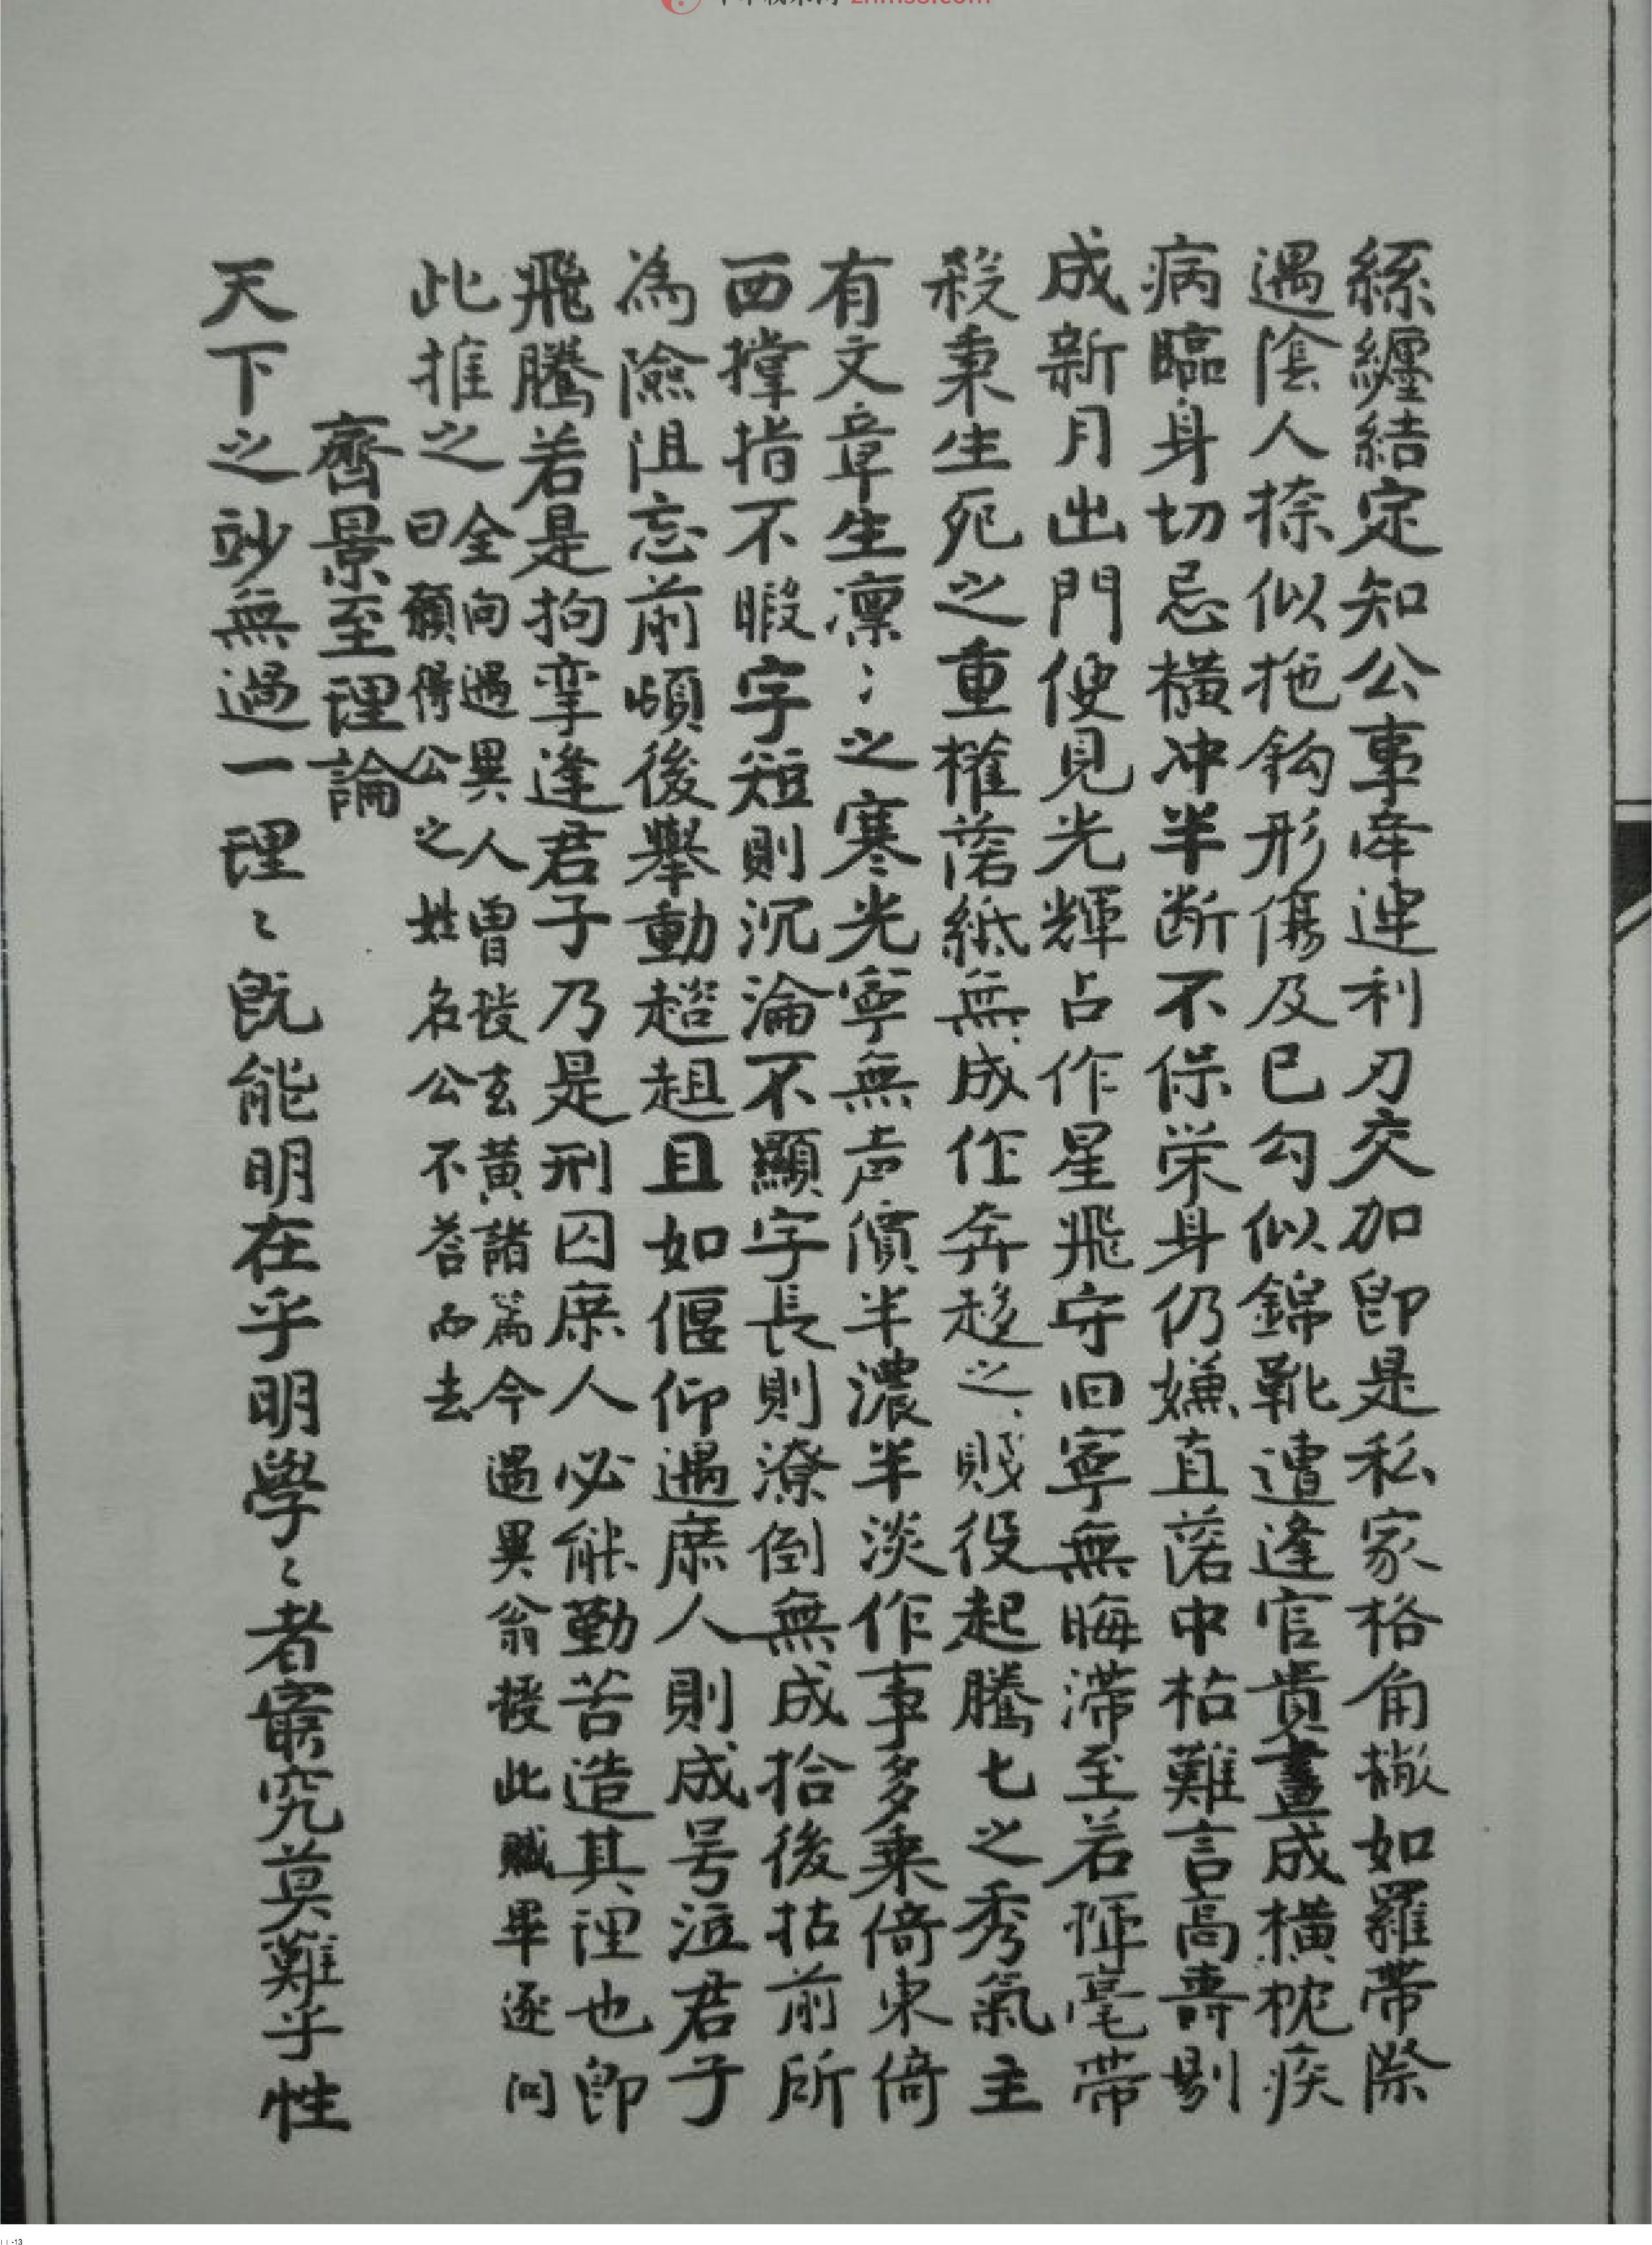 zhms8.com
絲纏結定知公事牽連利刃交加即是私家格角撇如羅帶際
遇陰人捺似拖鈎形傷及已勾似錦靴遭逢官貴畫成橫枕疾
病臨身切忌橫冲半断不保栄身仍嫌直落中枯難言高壽剔
成新月出門便見光輝占作星飛守旧寧無晦滯至若揮毫帶
殺秉生死之重權落紙無成作奔趍之賤役起騰七之秀氣主
有文章生凛〻之寒光寧無声價半濃半淡作事多乘倚東倚
西撑指不暇字短則沉淪不顯字長則潦倒無成拾後拈前所
為險阻忘前頋後舉動趑趄且如偃仰遇庶人則成号泣君子
飛騰若是拘挛逢君子乃是刑囚庶人必能勤苦造其理也即
此推之
全向遇異人曾授玄黄諸篇今遇異翁授此賦畢逐问
曰願得公之姓名公不荅而去
齊景至理論
天下之玅無過一理〻既能明在乎明學〻者窮究莫難乎性
11-13